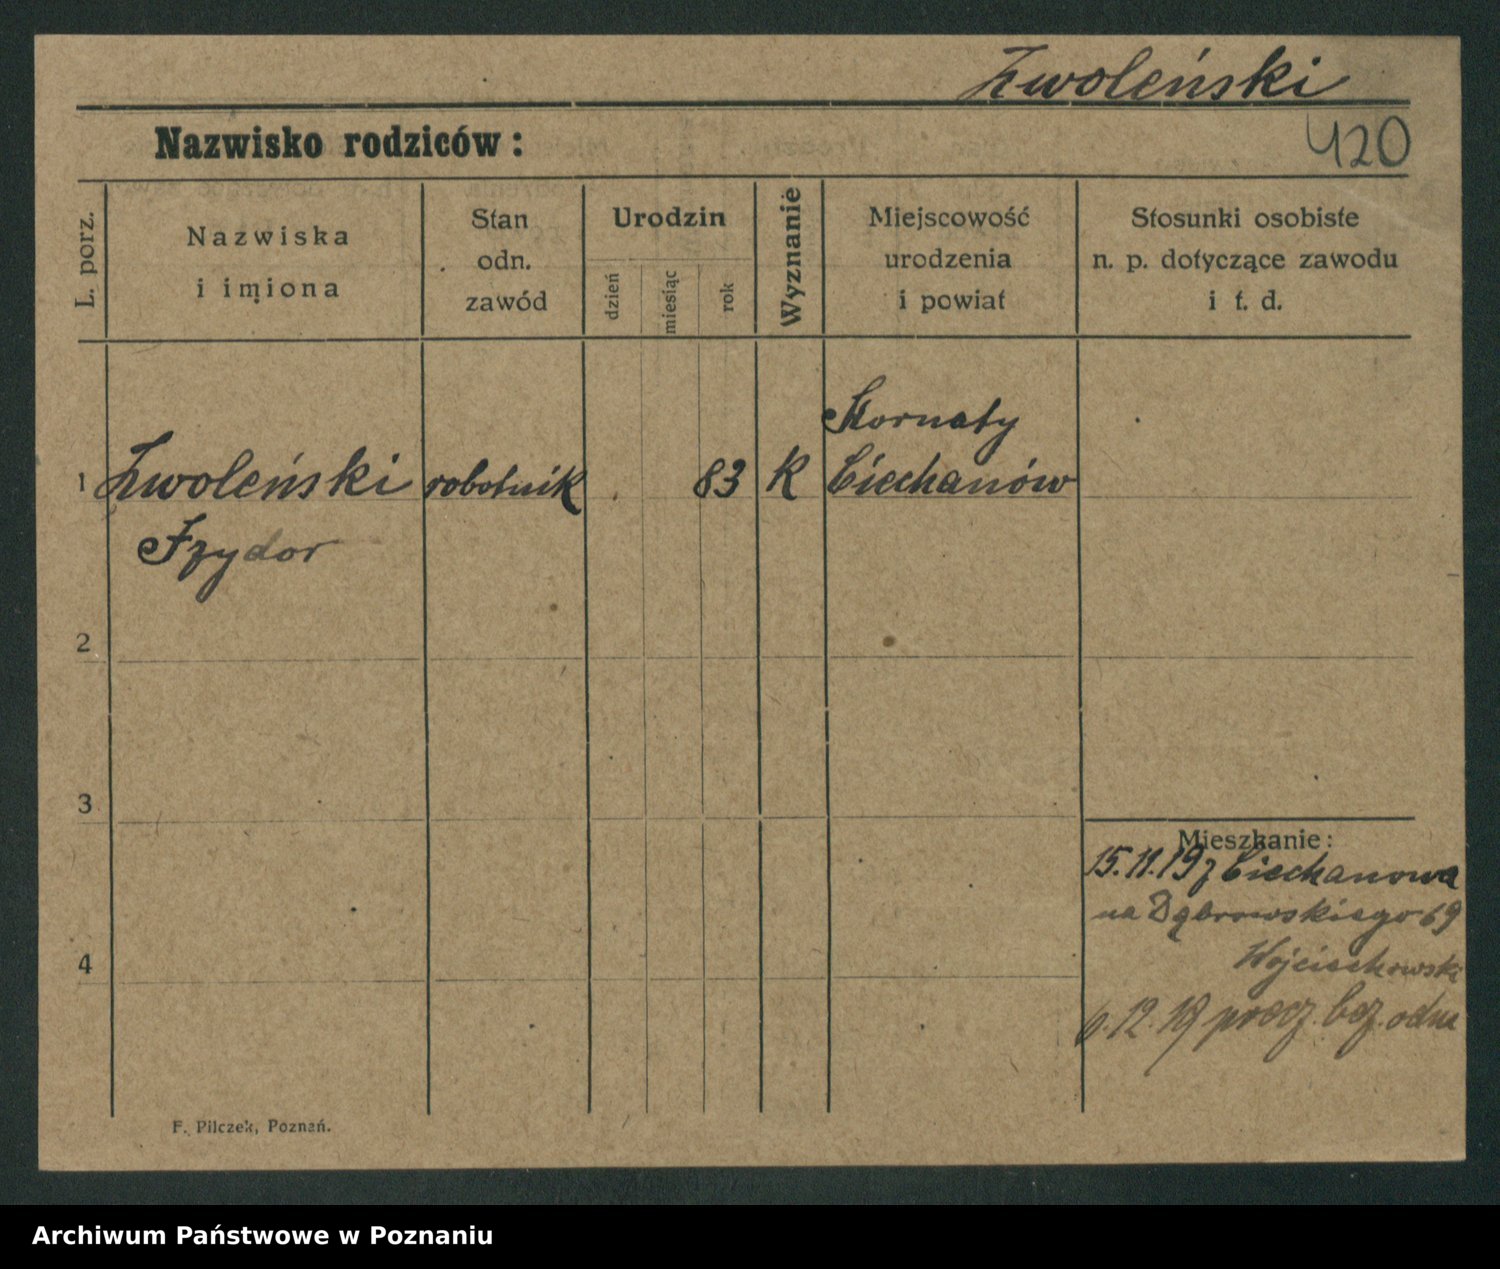 Zwoleński
Nazwisko rodziców:
420
L. porz.
Nazwiska
i imiona
Stan
odn.
zawód
Urodzin
dzień
miesiąc
rok
Wyznanie
Miejscowość
urodzenia
i powiat
Stosunki osobiste
n. p. dotyczące zawodu
i t. d.
Kornaty
1 Zwoleński robotnik 83 K Ciechanów
Izydor
2
3
4
Mieszkanie:
15.11.19 z Ciechanowa
na Dąbrowskiego 69
Wojciechowski
6.12.19
F. Pilczek, Poznań.
Archiwum Państwowe w Poznaniu